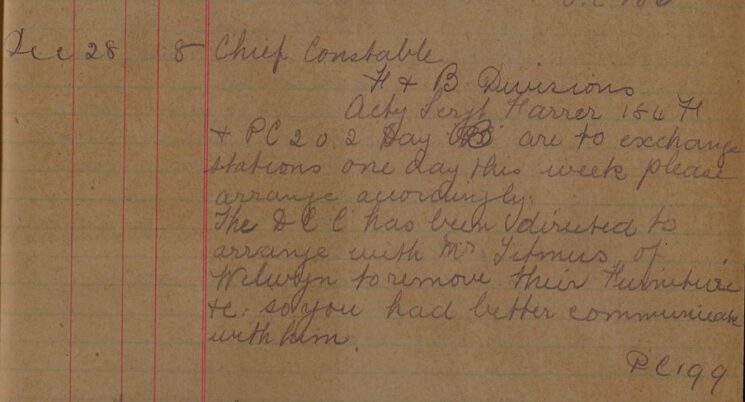 Dec 28 8 Chief Constable
H & B Divisions
Actg Sergt Farrer 184 H
& PC 202 Day B are to exchange
stations one day this week please
arrange accordingly.
The D C C has been directed to
arrange with Mr Titmus of
Welwyn to remove their Furniture
&c. so you had better communicate
with him.
PC 199